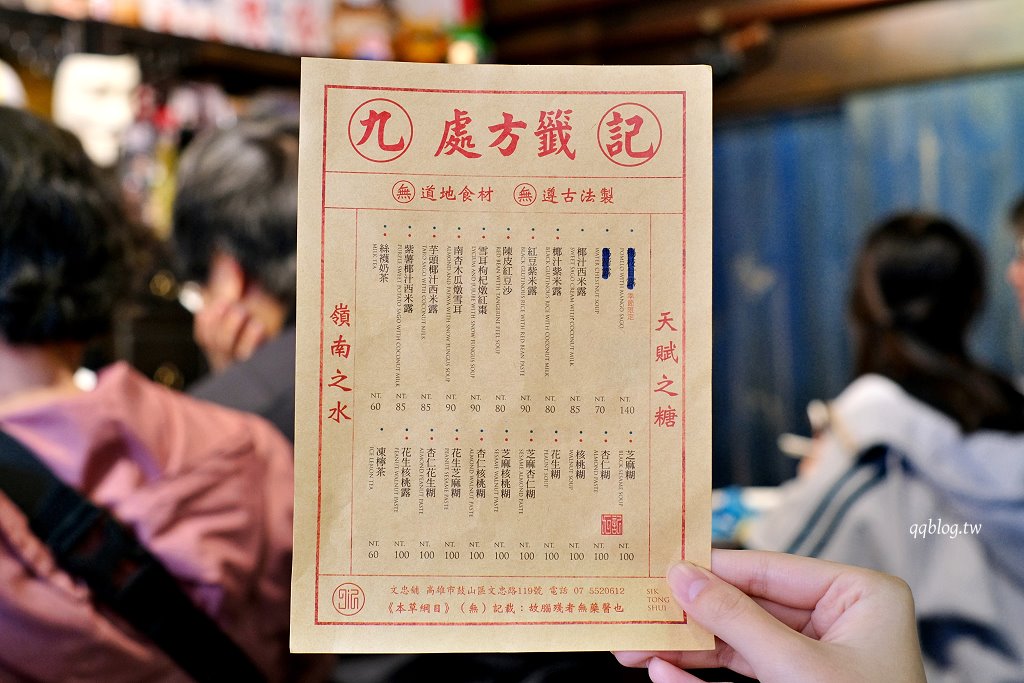 九 處方籤 記
無 道地食材 無 遵古法製
天賦之糖
季節限定
POMELO WITH MANGO SAGO
NT. 140
WATER CHESTNUT SOUP
NT. 70
椰汁西米露
SWEET SAGO CREAM WITH COCONUT MILK
NT. 85
椰汁紫米露
BLACK GLUTINOUS RICE WITH COCONUT MILK
NT. 80
紅豆紫米露
BLACK GLUTINOUS RICE WITH RED BEAN PASTE
NT. 90
陳皮紅豆沙
RED BEAN WITH TANGERINE PEEL SOUP
NT. 80
雪耳枸杞燉紅棗
NT. 90
南杏木瓜燉雪耳
ALMOND AND PAPAYA WITH SNOW FUNGUS SOUP
NT. 90
芋頭椰汁西米露
TARO SAGO WITH COCONUT MILK
NT. 85
紫薯椰汁西米露
PURPLE SWEET POTATO SAGO WITH COCONUT MILK
NT. 85
絲襪奶茶
MILK TEA
NT. 60
芝麻糊
BLACK SESAME SOUP
NT. 100
杏仁糊
ALMOND PASTE
NT. 100
核桃糊
WALNUT SOUP
NT. 100
花生糊
PEANUT SOUP
NT. 100
芝麻杏仁糊
SESAME ALMOND PASTE
NT. 100
芝麻核桃糊
SESAME WALNUT PASTE
NT. 100
杏仁核桃糊
ALMOND WALNUT PASTE
NT. 100
花生芝麻糊
PEANUT SESAME PASTE
NT. 100
杏仁花生糊
ALMOND PEANUT PASTE
NT. 100
花生核桃露
PEANUT WALNUT PASTE
NT. 100
凍檸茶
ICE LEMON TEA
NT. 60
嶺南之水
文忠鋪 高雄市鼓山區文忠路119號 電話 07 5520612
《本草綱目》（無）記載：故腦殘者無藥醫也
SIK
TONG
SHUI
qqblog.tw